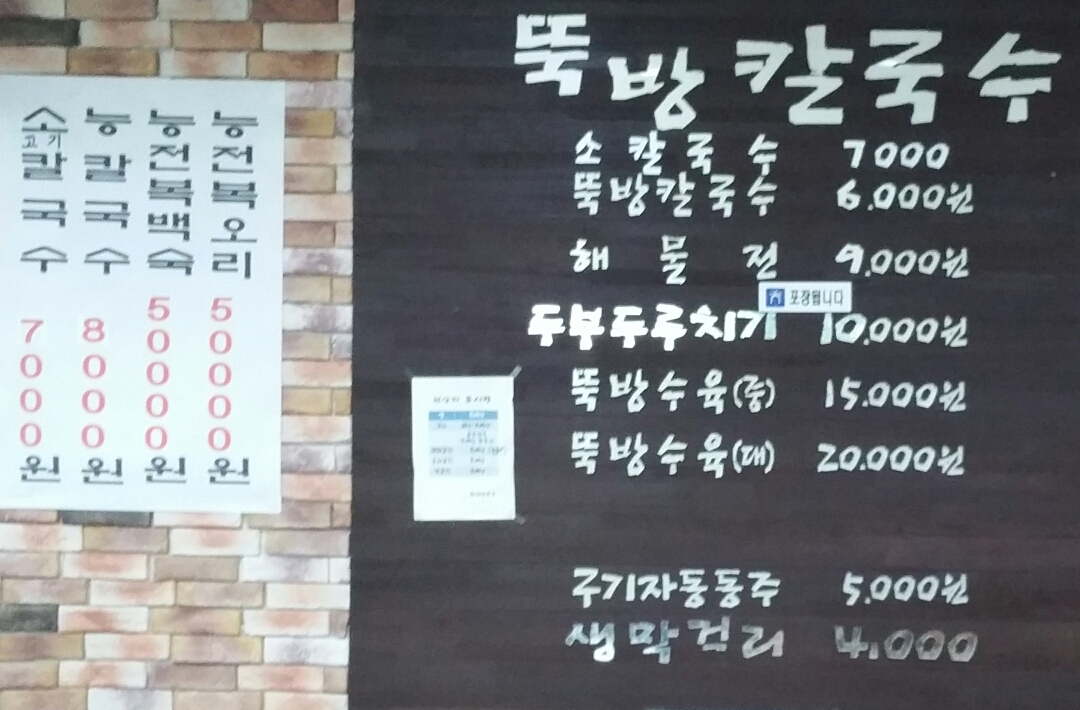 뚝방칼국수
소칼국수 7000
뚝방칼국수 6.000원
해물전 9.000원
포장됩니다
두부두루치기 10.000원
뚝방수육(중) 15.000원
뚝방수육(대) 20.000원
구기자동동주 5.000원
생막걸리 4,000
능전복오리 50000원
능전복백숙 50000원
능칼국수 8000원
소고기칼국수 7000원